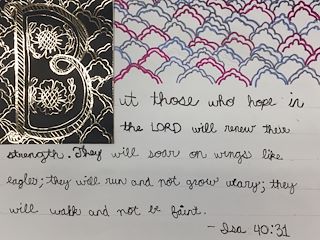 But those who hope in
the LORD will renew there
strength. They will soar on wings like
eagles; they will run and not grow weary; they
will walk and not be faint.
- Isa 40:31